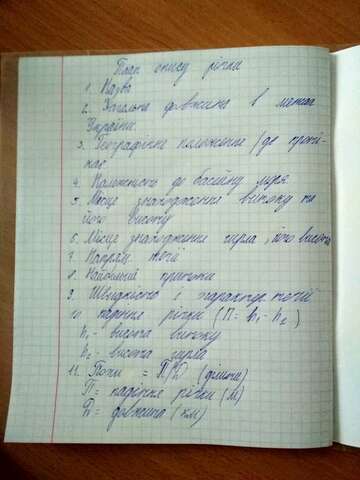 План опису річки
1. Назва
2. Загальна довжина в межах
України.
3. Географічне положення (де проті-
кає
4. Належність до басейну моря
5. Місце знаходження витоку та
його висоту
6. Місце знаходження гирла, його висота
7. Напрям течії
8. Найбільші притоки
9. Швидкість і характер течії
10. падіння річки (П = h₁ - h₂)
h₁ - висота витоку
h₂ - висота гирла
11. Похи = П/Д (ділити)
П = падіння річки (м)
Д = довжина (км)